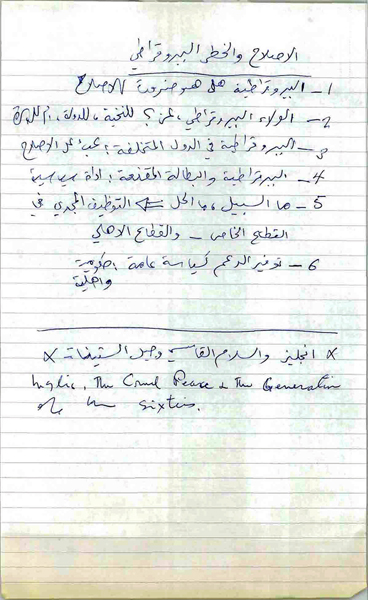 الاصلاح والخطر البيروقراطي
1 ـ البيروقراطية هل هو ضرورة للاصلاح
2 ـ الولاء البيروقراطي، لمن؟ للنخبة، للدولة، ام
3 ـ البيروقراطية في الدول المتخلفة؛ عبء على الاصلاح
4 ـ البيرقراطية والبطالة المقنعة؛ اداة سياسية
5 ـ ما السبيل، ما الحل ⇐ التوظيف المجدي في
القطاع الخاص ـ والقطاع الاهلي
6 ـ توفير الدعم كسياسة عامة؛ حكومية
واهلية
x انجليز والسلام القاسي وجيل الستينات x
Inglis, The Cruel Peace & The Generation
of the Sixties.